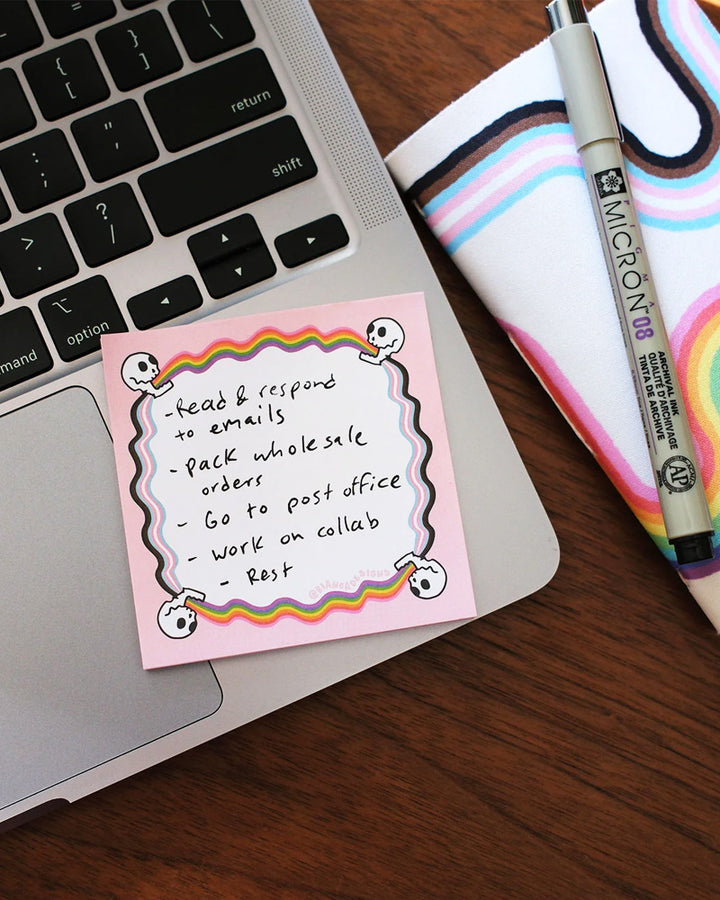 {
[
}
]
|
\
return
"
'
:
;
shift
?
/
>
.
option
mand
-Read & respond
to emails
- pack wholesale
orders
- Go to post office
- work on collab
- Rest
@BIANCASDESIGNS
PIGMA
MICRON™ 08
ARCHIVAL INK
QUALITÉ D'ARCHIVAGE
TINTA DE ARCHIVE
AP